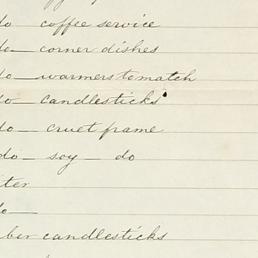 do coffee service
do — corner dishes
do — warmers to match
do candlesticks
do — cruet frame
do — soy — do
do —
candlesticks